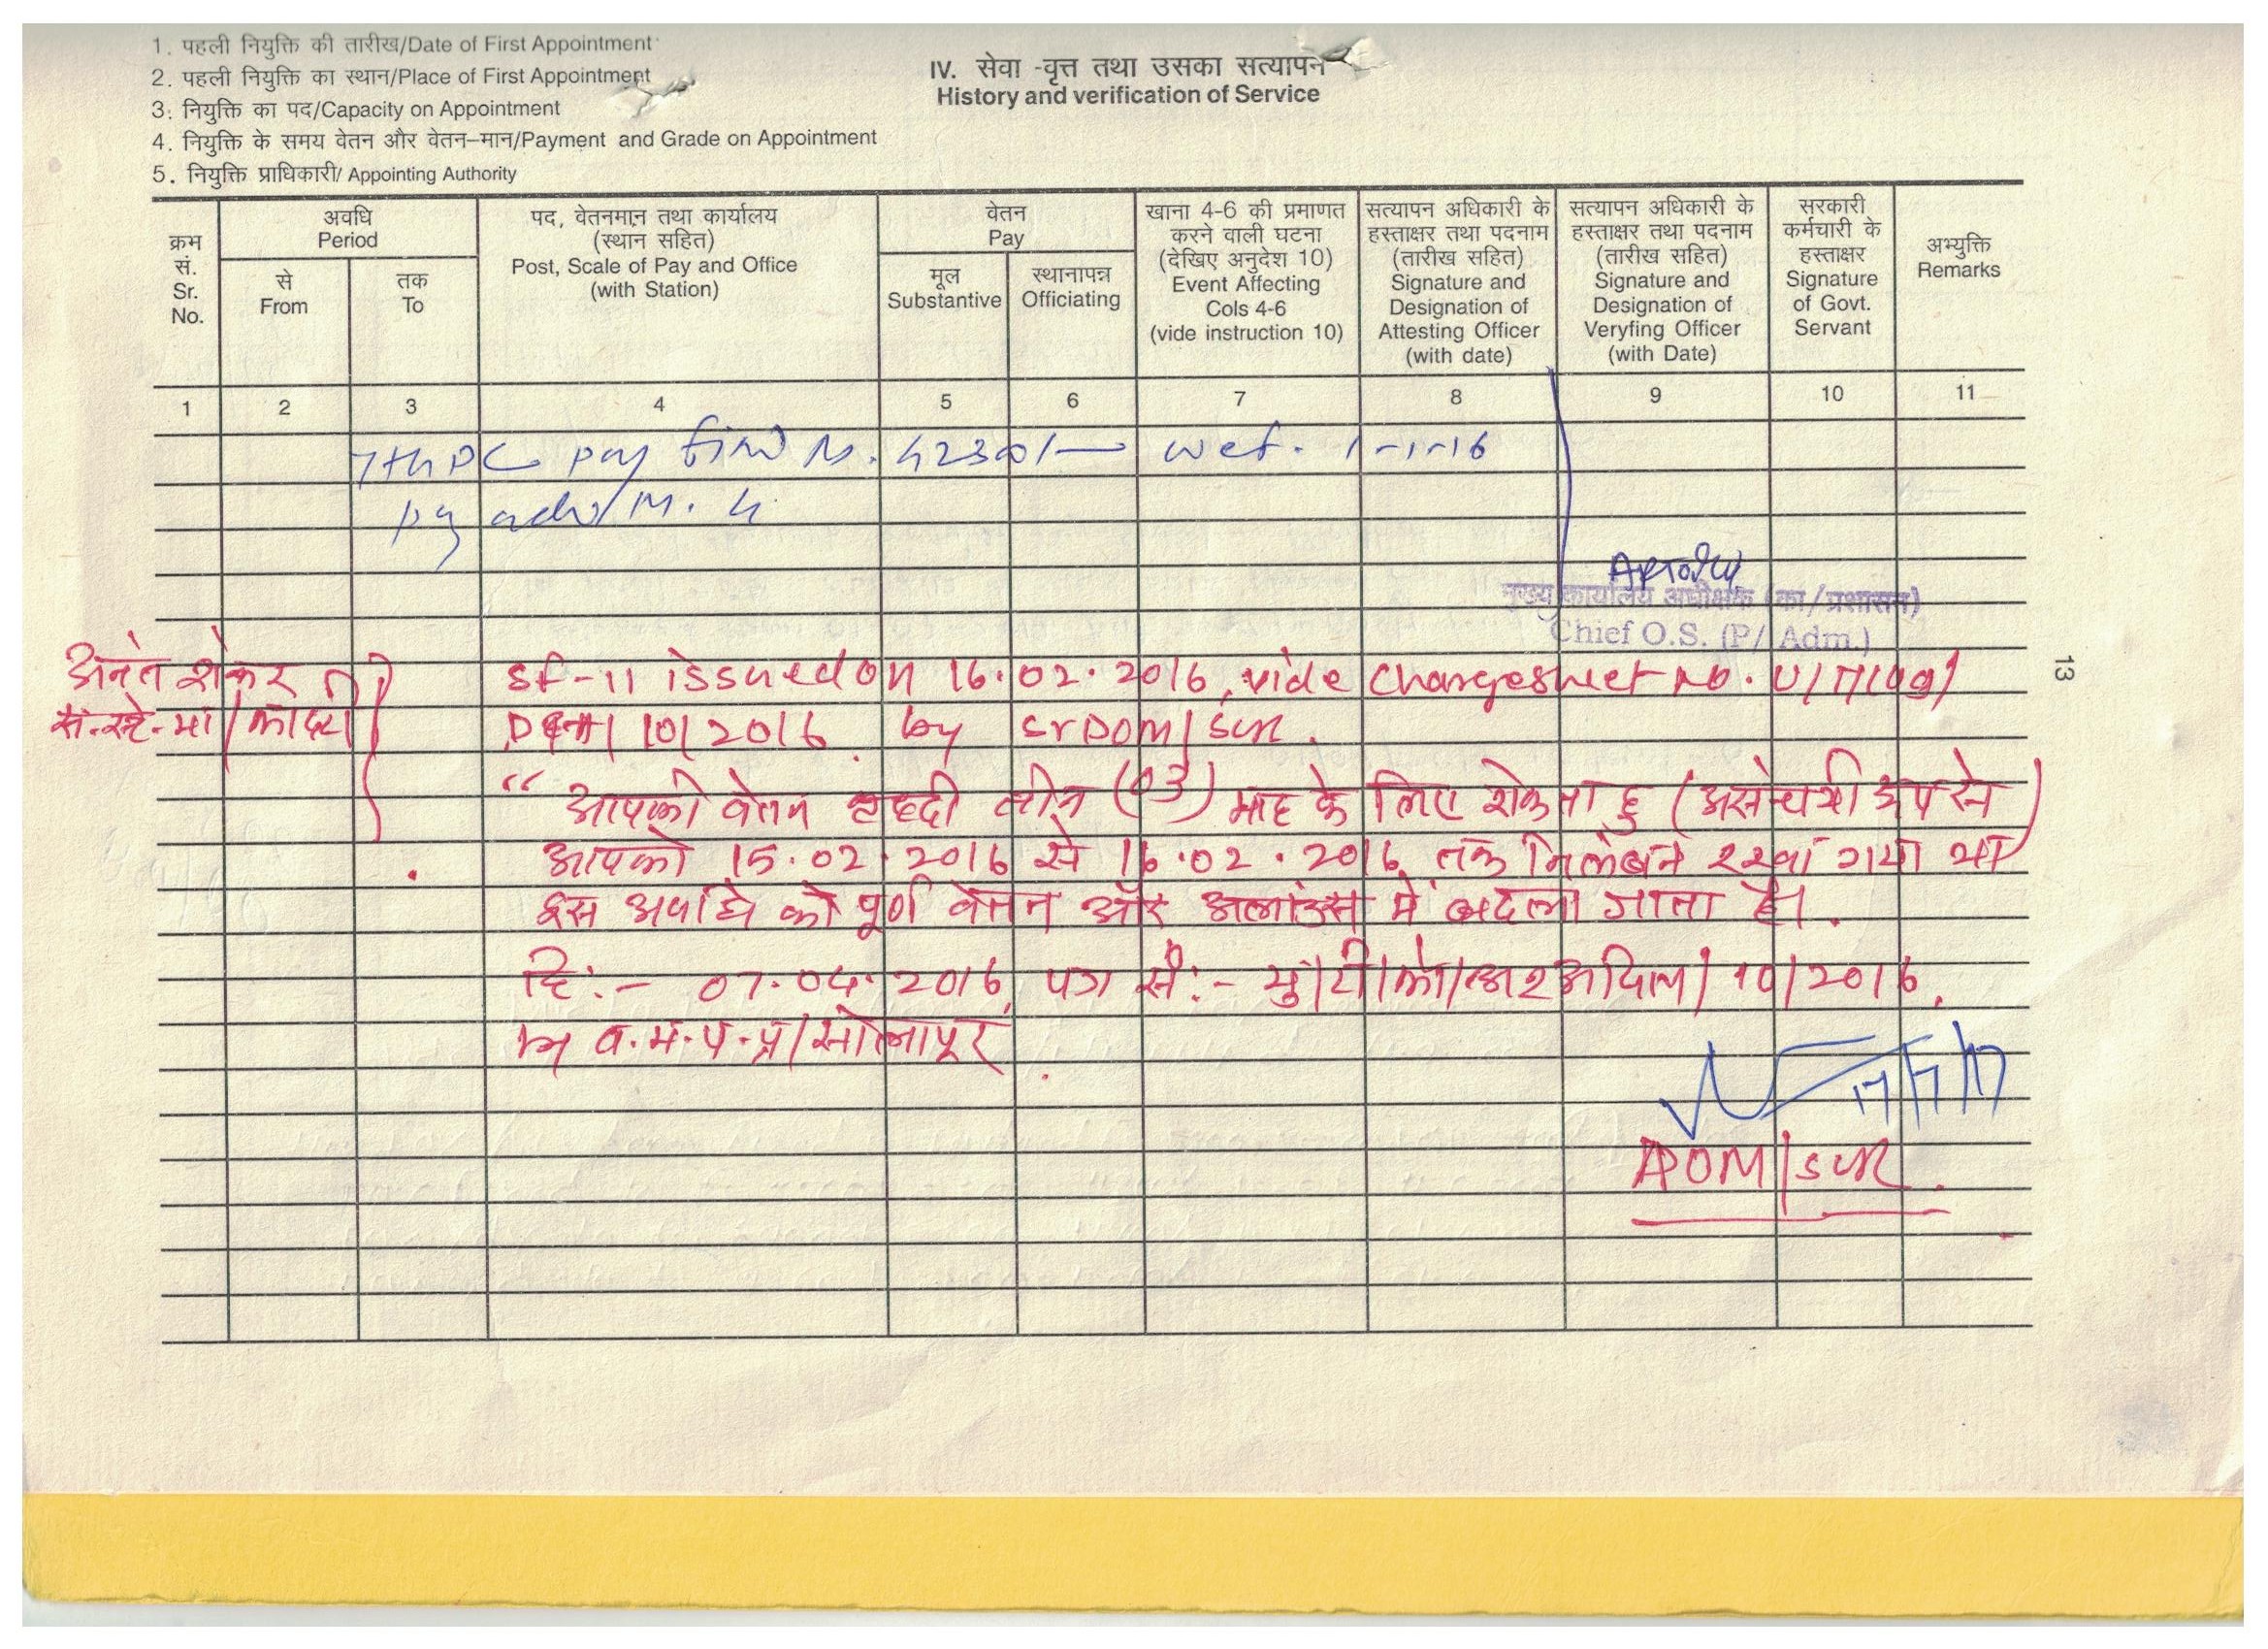 1. पहली नियुक्ति की तारीख/Date of First Appointment
2. पहली नियुक्ति का स्थान/Place of First Appointment
3. नियुक्ति का पद/Capacity on Appointment
4. नियुक्ति के समय वेतन और वेतन-मान/Payment and Grade on Appointment
5. नियुक्ति प्राधिकारी/ Appointing Authority
IV. सेवा -वृत्त तथा उसका सत्यापन
History and verification of Service
क्रम
सं.
Sr.
No.
अवधि
Period
से
From
तक
To
पद, वेतनमान तथा कार्यालय
(स्थान सहित)
Post, Scale of Pay and Office
(with Station)
वेतन
Pay
मूल
Substantive
स्थानापन्न
Officiating
खाना 4-6 की प्रमाणत
करने वाली घटना
(देखिए अनुदेश 10)
Event Affecting
Cols 4-6
(vide instruction 10)
सत्यापन अधिकारी के
हस्ताक्षर तथा पदनाम
(तारीख सहित)
Signature and
Designation of
Attesting Officer
(with date)
सत्यापन अधिकारी के
हस्ताक्षर तथा पदनाम
(तारीख सहित)
Signature and
Designation of
Veryfing Officer
(with Date)
सरकारी
कर्मचारी के
हस्ताक्षर
Signature
of Govt.
Servant
अभ्युक्ति
Remarks
1 2 3 4 5 6 7 8 9 10 11
7th PC pay fixed Rs. 42300/- wef. 1-1-16
मुख्य कार्यालय अधीक्षक (का/प्रशासन)
Chief O.S. (P/ Adm.)
13
SF-11 issued on 16.02.2016, vide Chargesheet No.
10/2016 by SrDOM/SUR.
" आपकी वेतन तीन (03) माह के लिए रोकता हु
आपको 15.02.2016 से 16.02.2016 तक निलंबन रखा गया था
इस अवधि को पूर्ण वेतन और अलाउंस में बदला जाता है।
दि:- 07.04.2016, पत्र सं:- 10/2016.
by व.म.प.प्र/सोलापूर.
17/7/17
AOM/SUR.